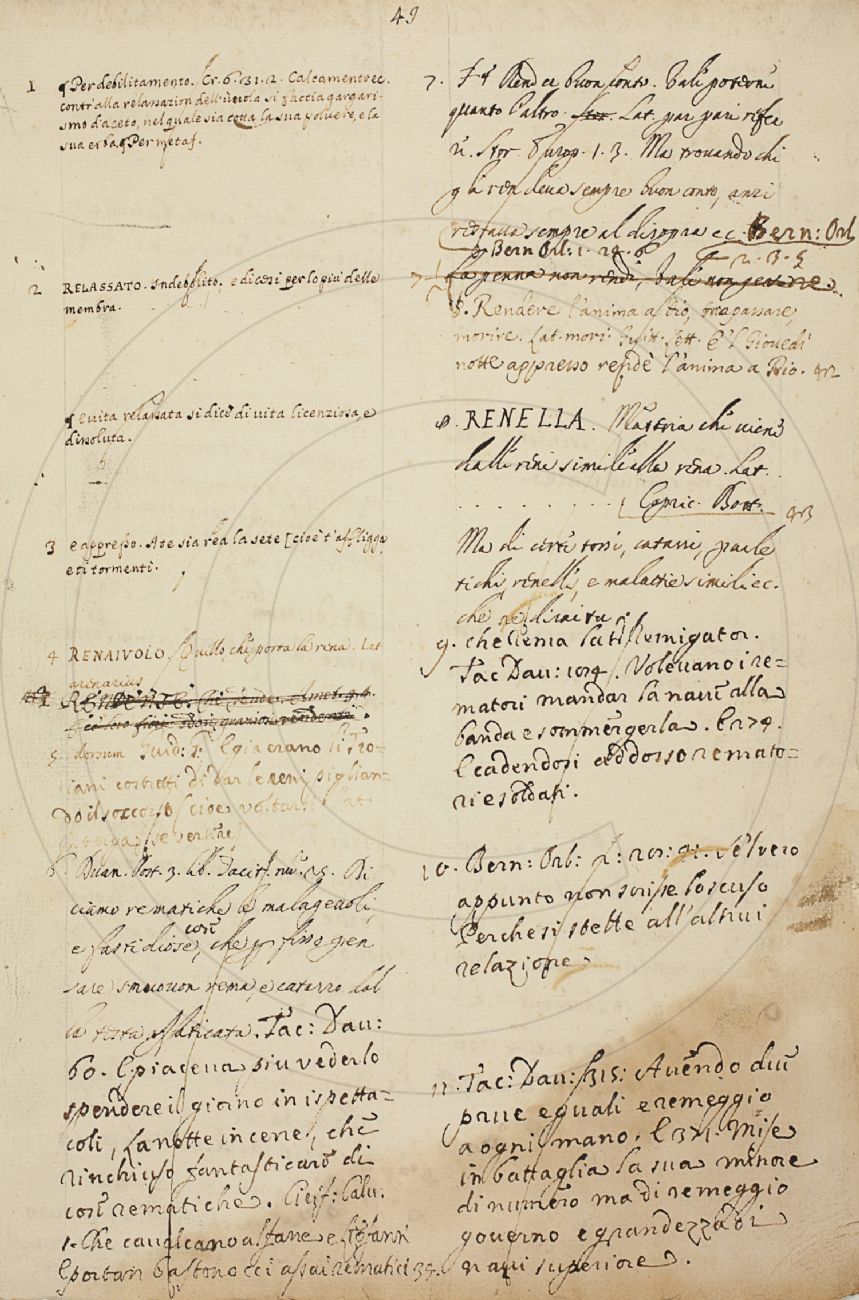 49
1 ¶ Per debilitamento. Cr. 6. 31. 2. Calcamento ec.
contr'alla relassazion dell'uvola si faccia gargari-
smo d'aceto, nel quale sia cotta la sua polvere, e la
sua erba. ¶ Per metaf.
2 RELASSATO. Indebolito, e dicesi per lo più delle
membra.
¶ E vita relassata si dice di vita licenziosa, e
dissoluta.
3 e appresso. A te sia rea la sete [cioè t'affligga
e ti tormenti.
4 RENAIVOLO. Quello che porta la rena. Lat.
arenarius
RENDENTE. Che rende,
5 dorsum Guid: G: E piacerano li Tro-
iani costretti di dar le reni, piglian-
do il soccorso (cioè voltarsi Lat.
terga vertere)
6. Buon. 3.
ciamo rematiche le malagevoli,
e fastidiose cose, che fisso pen
sare smuovon rema, e catarro dal
la testa affaticata. Tac: Dav:
60. E piaceva si u vederlo
spendere il giorno in ispetta=
coli, la notte in cene, che
rinchiuso fantasticare di
cose rematiche.
1. Che cavalcano alfane e
E portan bastone ed assai rematici 39.
7. Render buon conto. Vale
quanto l'altro. Stor. Lat. par pari
v. Stor. Europ. 1. 3. Ma trovando chi
gli rendeva sempre buon conto, anzi
restava sempre al disopra ec. Bern: Orl
Bern Orl: 1. 29. 6 2. 3. 5
7 La penna non rende, vale non
§. Rendere l'anima a Dio, trapassare,
morire. Lat. mori. E'l Giovedì
notte appresso rendè l'anima a Dio. 42
8. RENELLA. Materia che viene
dalle reni simile alla rena. Lat.
. . . . . . . . . . Capric. Bott. 43
Ma di certe tossi, catarri, parle
tichi, renelle, e malattie simili ec.
9. che rema Lat. Remigator.
Tac Dav: 1034. Volevano i re=
matori mandar la nave alla
banda e sommergerla. E 274.
E cadendosi addosso remato=
ri e soldati.
10. Bern: Orl: 2: Se'l vero
appunto non scrisse
Perche si stette all'altrui
relazione
11. Tac: Dav: 315: Avendo due
prue eguali e remeggio
a ogni mano. E 371. Mise
in battaglia la sua minore
di numero ma di remeggio
governo e grandezza di
navi superiore.